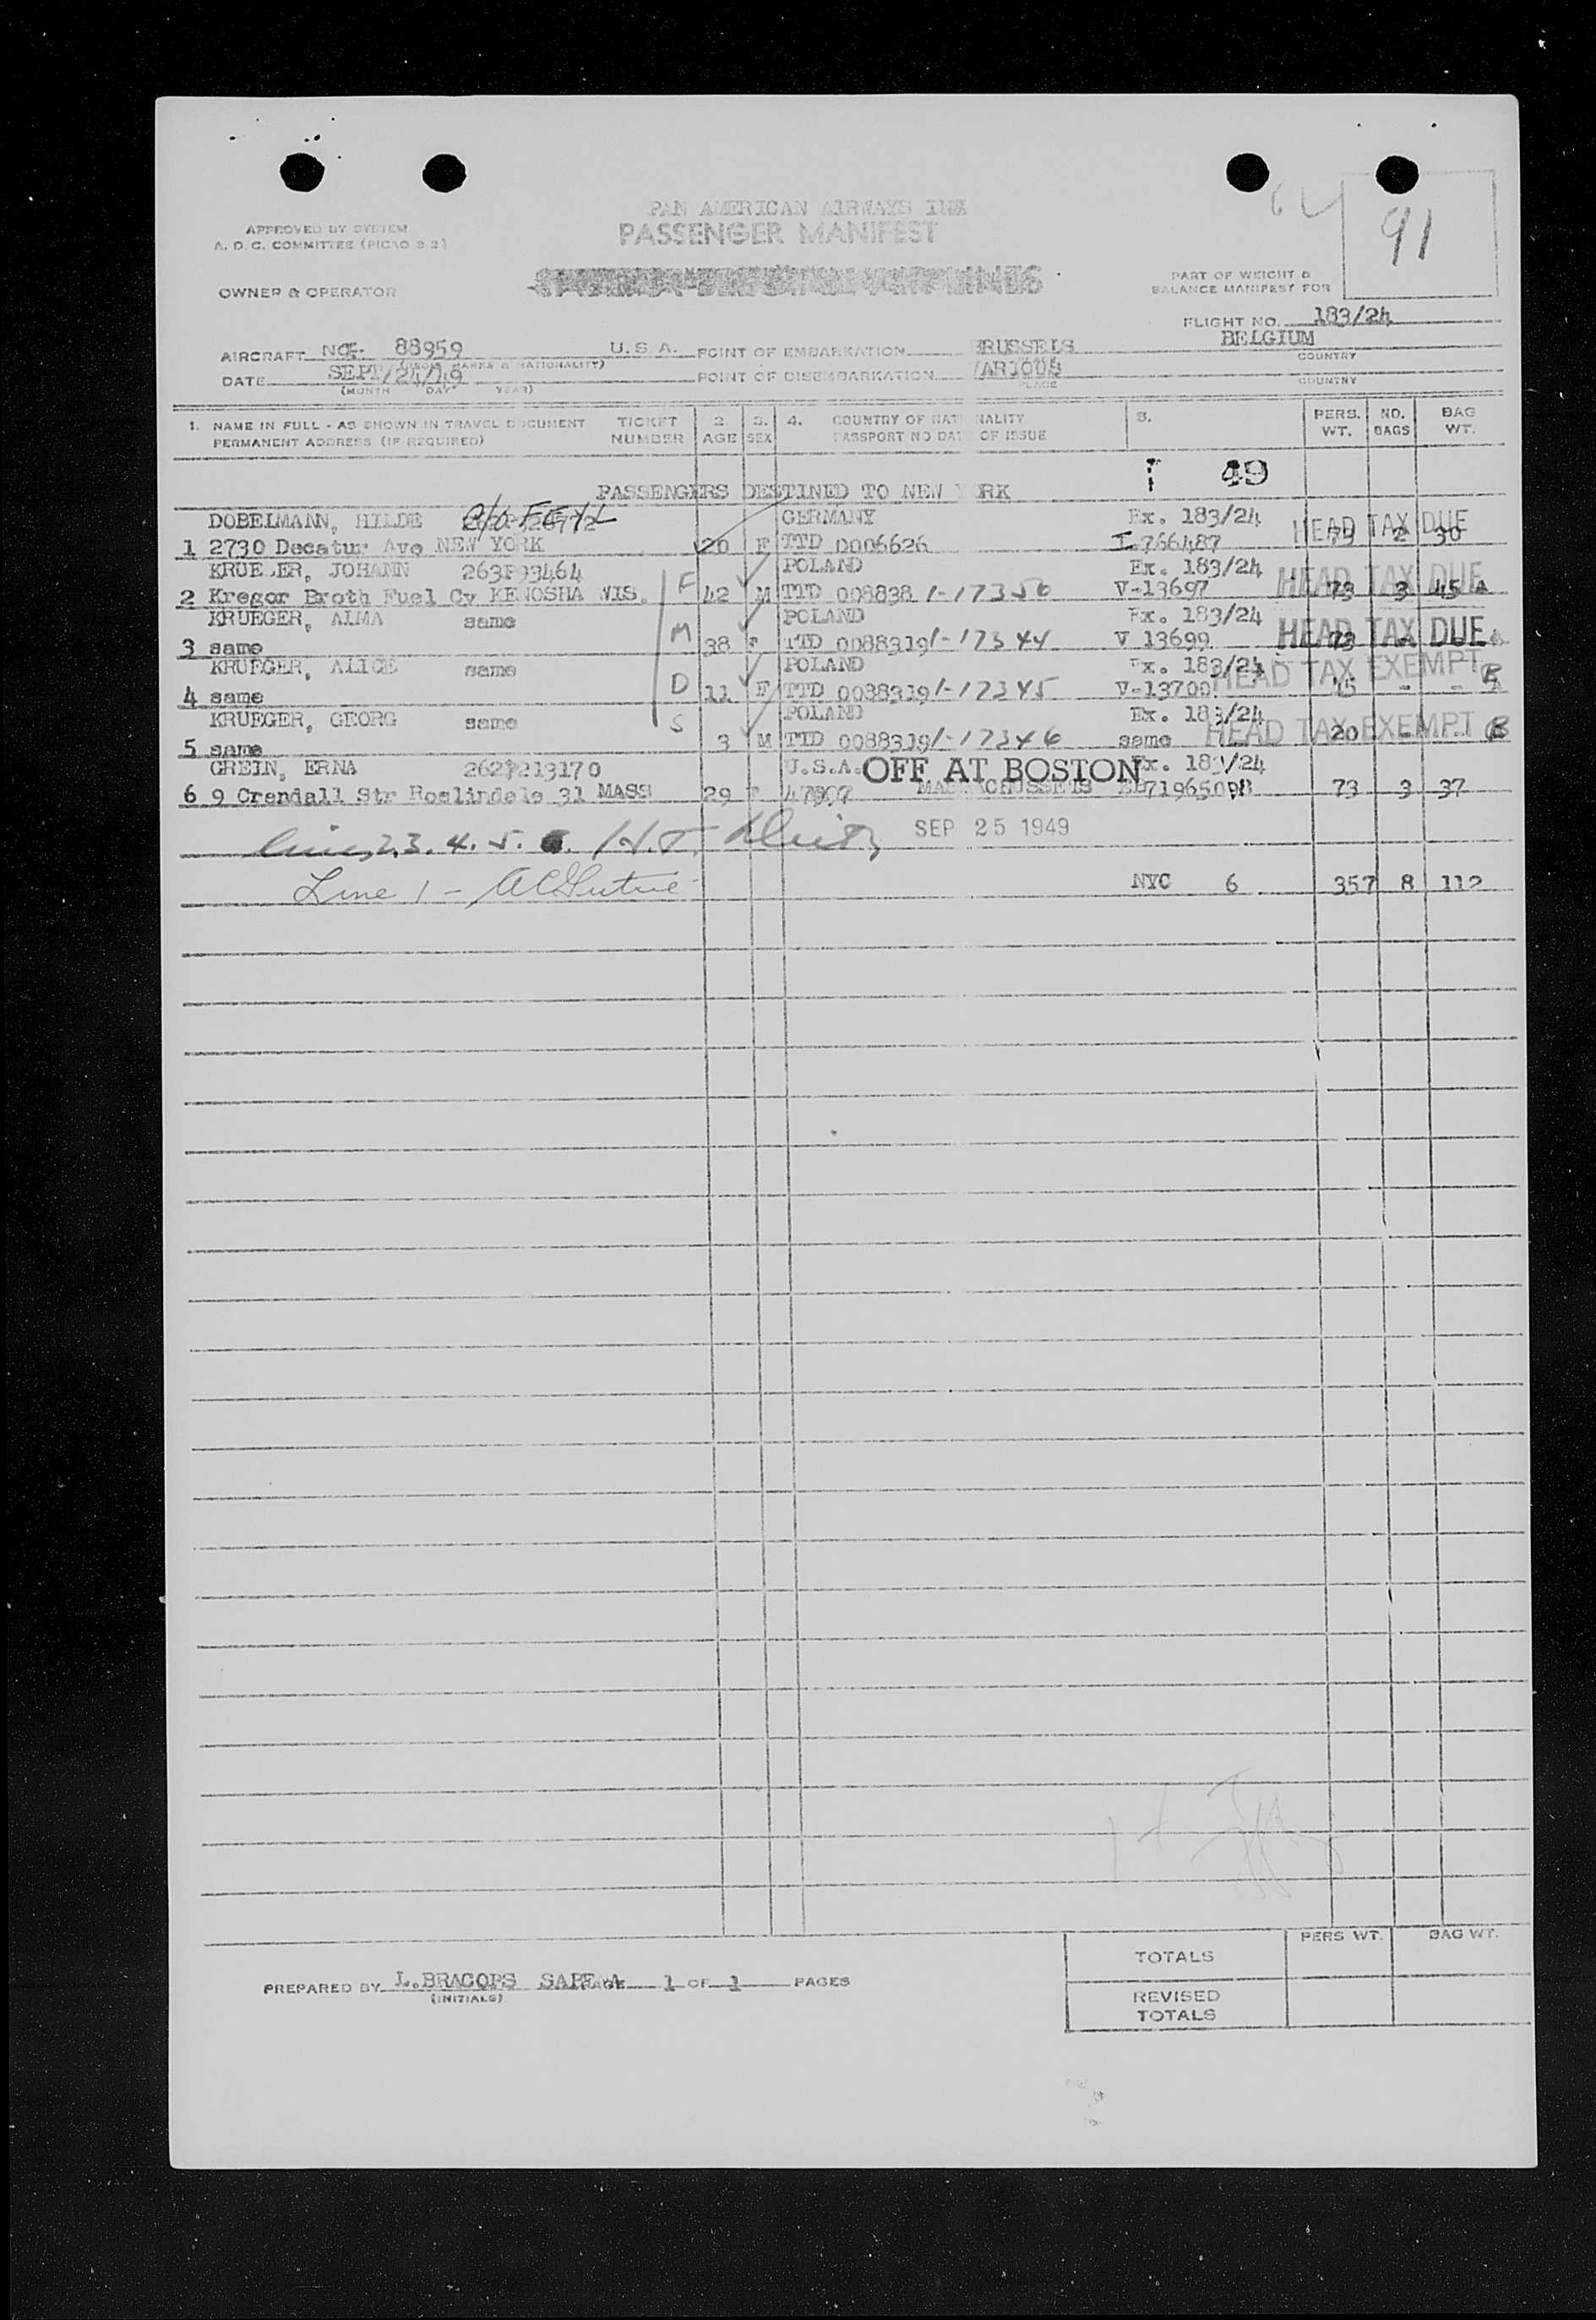 PAN AMERICAN AIRWAYS INC
PASSENGER MANIFEST
APPROVED BY SYSTEM
A. D. C. COMMITTEE (PICAO 9-2)
91
OWNER & OPERATOR
PART OF WEIGHT &
BALANCE MANIFEST FOR
FLIGHT NO. 183/24
AIRCRAFT NC 88959 U. S. A. POINT OF EMBARKATION BRUSSELS BELGIUM
(REGIS. MARKS & NATIONALITY) PLACE COUNTRY
DATE SEPT/24/49 POINT OF DISEMBARKATION VARIOUS
(MONTH DAY YEAR) PLACE COUNTRY
1. NAME IN FULL - AS SHOWN IN TRAVEL DOCUMENT TICKET 2. 3. 4. COUNTRY OF NATIONALITY 5. PERS. NO. BAG
PERMANENT ADDRESS (IF REQUIRED) NUMBER AGE SEX PASSPORT NO DATE OF ISSUE WT. BAGS WT.
49
PASSENGERS DESTINED TO NEW YORK
DOBELMANN, HILDE c/o FEYL GERMANY Ex. 183/24 HEAD TAX DUE
1 2730 Decatur Ave NEW YORK 20 F TTD 0006626 I-766487 2 30
KRUEGER, JOHANN 263P93464 POLAND Ex. 183/24 HEAD TAX DUE
2 Kregor Broth Fuel Cy KENOSHA WIS. F 42 M TTD 008838 1-17350 V-13697 73 3 45 A
KRUEGER, ALMA same POLAND Ex. 183/24
3 same M 38 F TTD 0088319 1-17344 V 13699 HEAD TAX DUE 73 - -
KRUEGER, ALICE same POLAND Ex. 183/24 HEAD TAX EXEMPT
4 same D 11 F TTD 0088319 1-17345 V-13700 45 - -
KRUEGER, GEORG same S POLAND Ex. 183/24 HEAD TAX EXEMPT
5 same 3 M TTD 0088319 1-17346 same 20 - -
GREIN, ERNA U.S.A. OFF AT BOSTON Ex. 183/24
6 9 Crandall Str Roslindale 31 MASS 29 F MASSACHUSSETS 73 3 37
2, 3. 4. 5. 6. H. T. SEP 25 1949
Line 1 - NYC 6 357 8 112
PREPARED BY L.BRACOPS SABENA PAGE 1 OF 1 PAGES
(INITIALS)
PERS WT. BAG WT.
TOTALS
REVISED
TOTALS